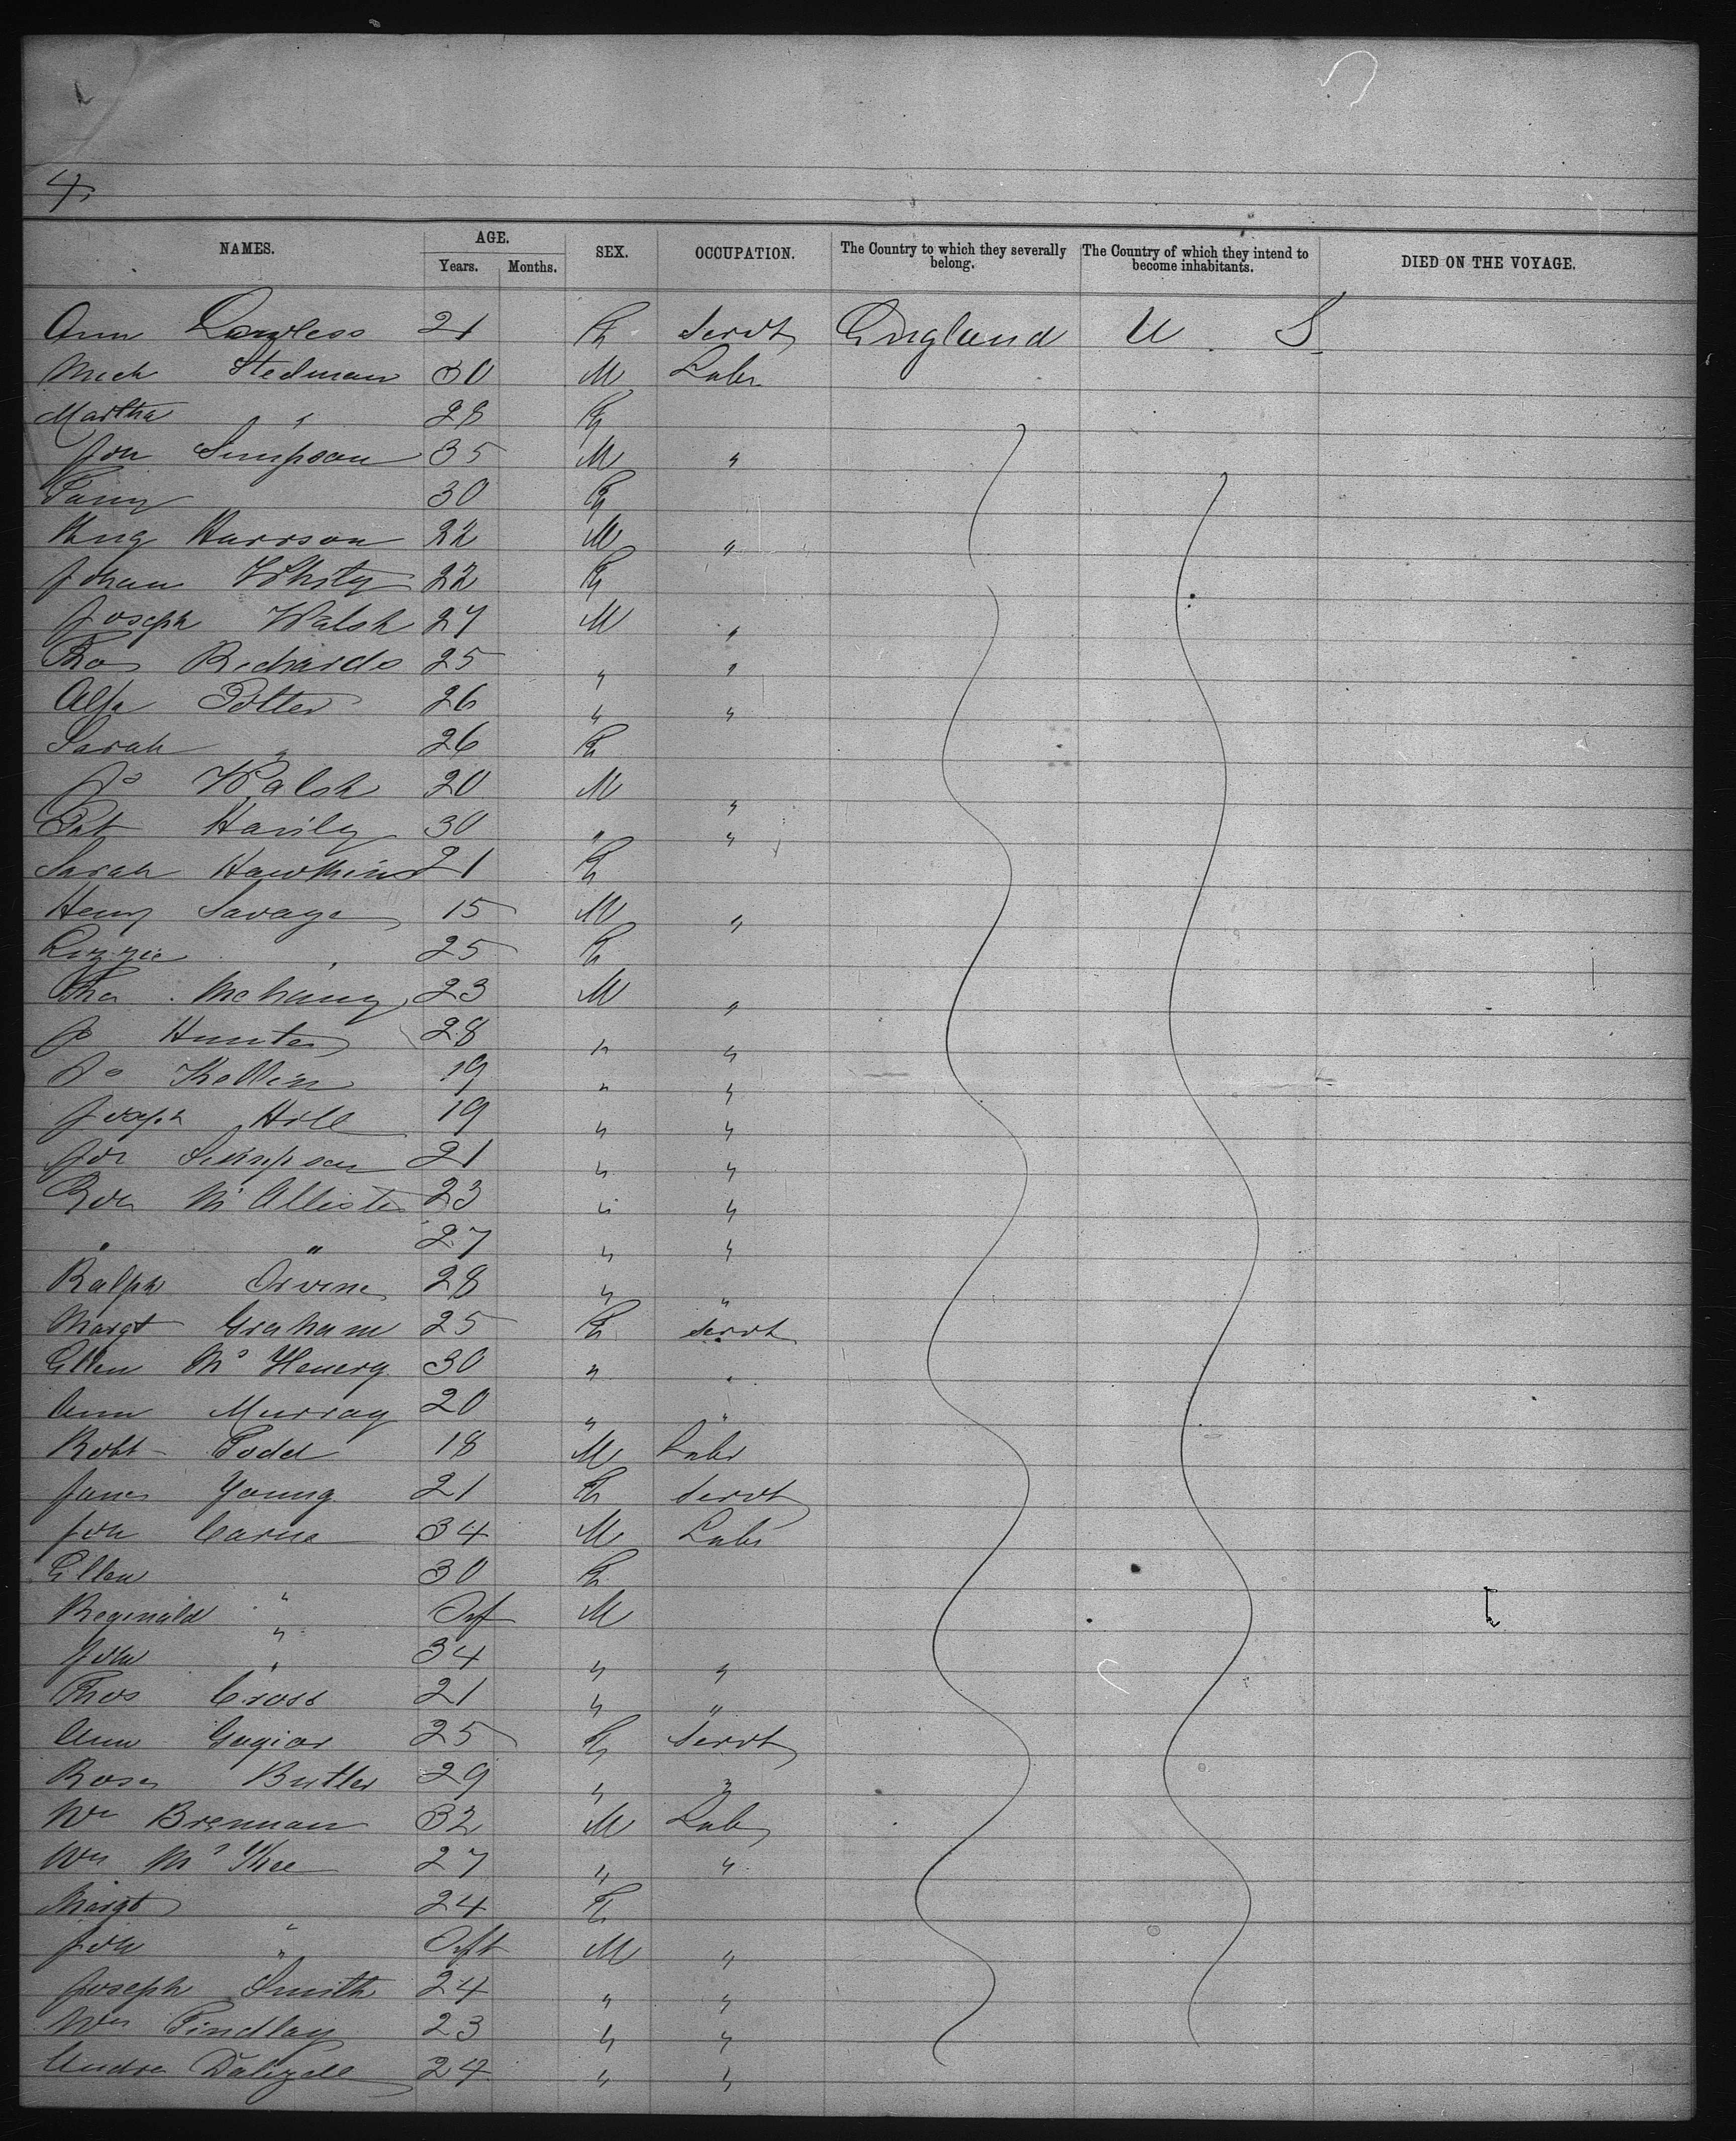 4.
NAMES. AGE. Years. Months. SEX. OCCUPATION. The Country to which they severally belong. The Country of which they intend to become inhabitants. DIED ON THE VOYAGE.
Ann Lawless 21 F Servt England U. S.
Mich Stedman 30 M Labr
Martha " 28 F
Jon Simpson 35 M "
Fanny 30 F
Hug Harrson 22 M "
Johan Whity 22 F
Joseph Walsh 27 M "
Thos Richards 25 " "
Alfr Potter 26 " "
Sarah " 26 F
Jo Walsh 20 M "
Pat Harily 30 " "
Sarah Hawkins 21 F
Heny Savage 15 M "
Lizzie " 25 F
Tho 23 M "
Jo Hunter 28 " "
Jo 19 " "
Joseph Hill 19 " "
Jon Simpson 21 " "
Mc Allister 23 " "
" " 27 " "
Ralph Irvine 28 " "
Margt Graham 25 F Servt
Ellen Mc Henerg 30 " "
Ann Murray 20 " "
Robt Todd 18 M Labr
Janes Young 21 F Servt
Jon Carne 34 M Labr
Ellen " 30 F
Reginald " Inf M
John " 34 " "
Thos Cross 21 " "
Ann 25 F Servt
Rose Butler 29 " "
Wm Brennan 32 M Labr
Wm Mc Kee 27 " "
Margt " 24 F
Jon " Inft M "
Joseph Smith 24 " "
Wm Findlay 23 " "
Andrw Dalzell 24 " "